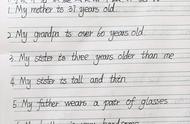 1. My mother is 37 years old.
2. My grandpa is over 60 years old
3. My sister is three years older than me
4. My sister is tall and thin
5. My father wears a pair of glasses